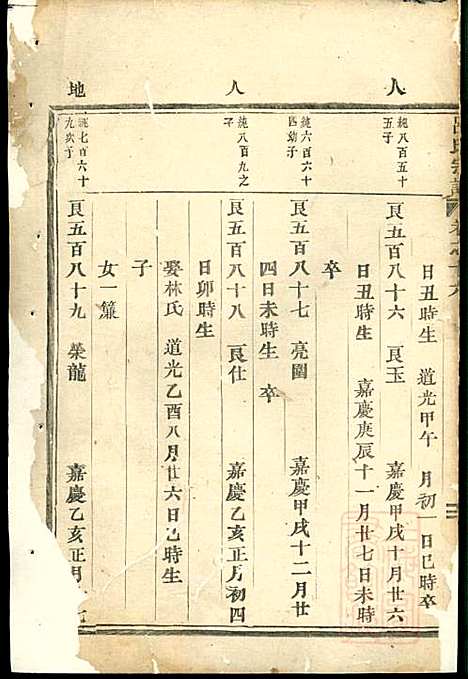 呂氏宗譜
人
人
地
日丑時生 道光甲午 月初一日巳時卒
純八百五十五子
艮五百八十六 艮玉 嘉慶甲戌十月廿六
日丑時生 嘉慶庚辰十一月廿七日未時
卒
純六百六十四幼子
艮五百八十七 亮圖 嘉慶甲戌十二月廿
四日未時生 卒
純八百九之子
艮五百八十八 艮仕 嘉慶乙亥正月初四
日卯時生
娶林氏 道光乙酉八月廿六日巳時生
子
女一簾
純七百六十九次子
艮五百八十九 榮龍 嘉慶乙亥正月